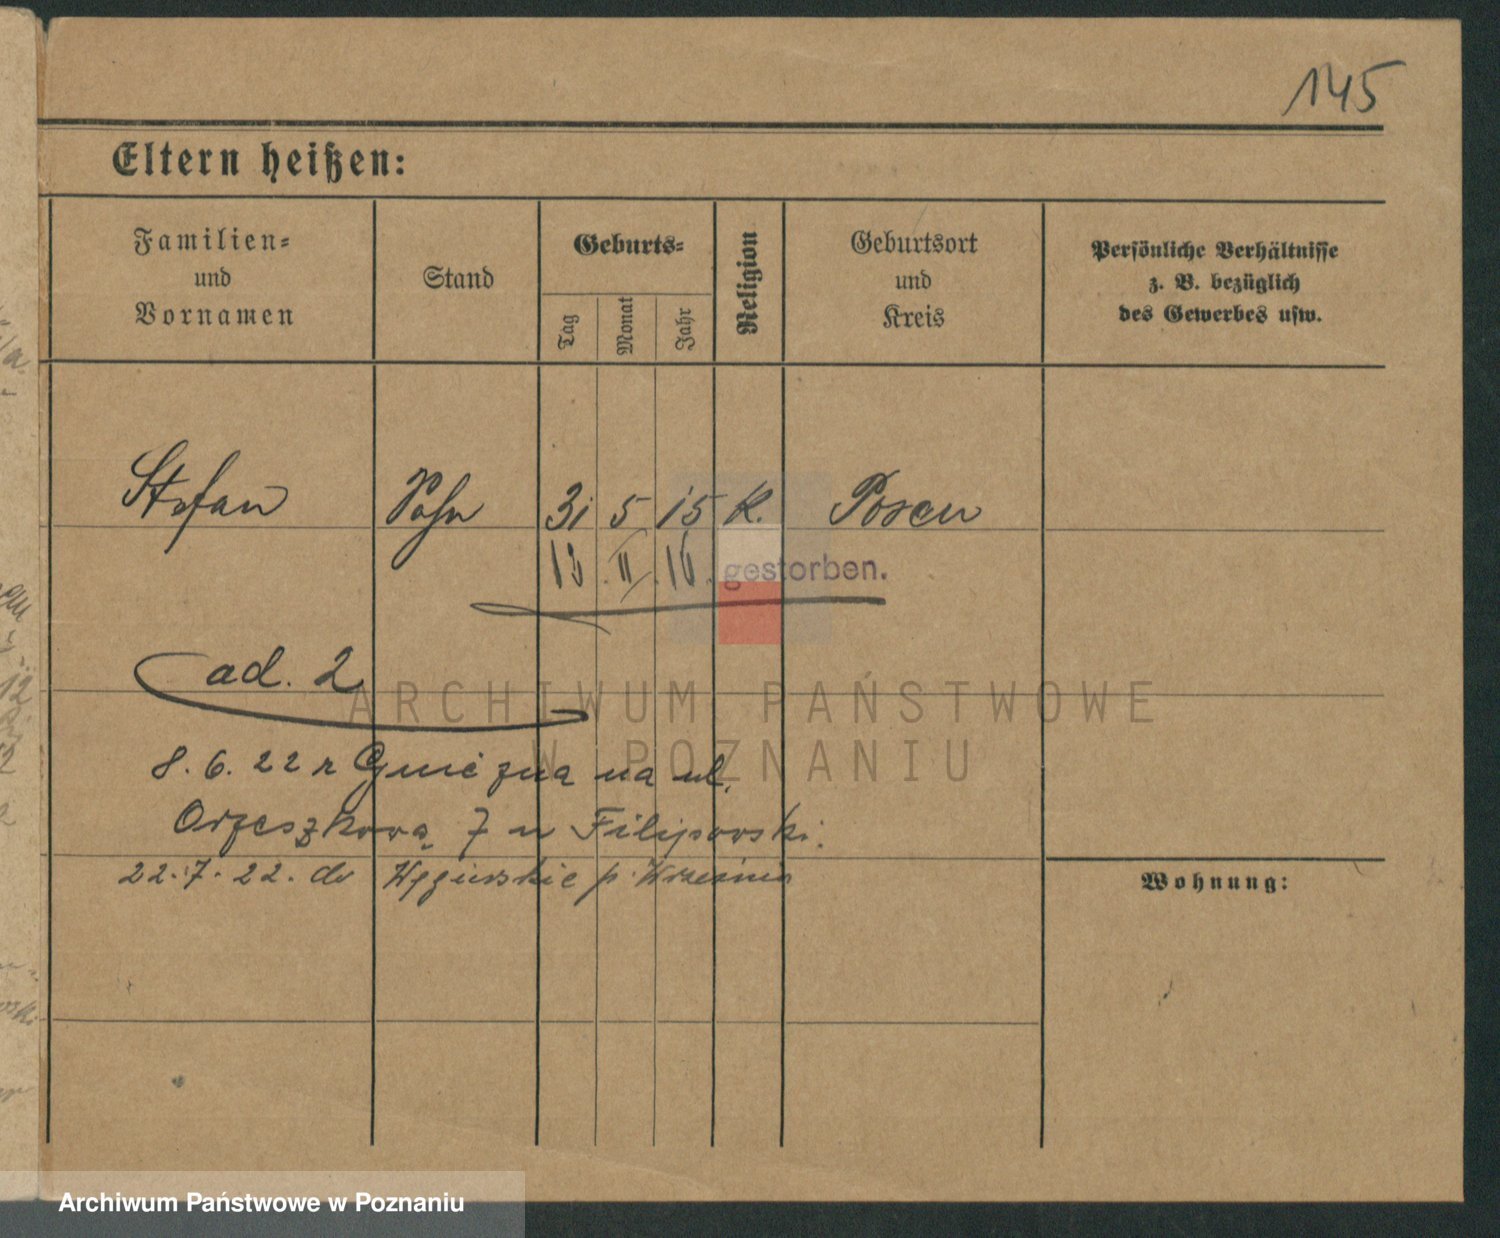 145
Eltern heißen:
Familien-
und
Vornamen
Stand
Geburts-
Tag
Monat
Jahr
Religion
Geburtsort
und
Kreis
Persönliche Verhältnisse
z. B. bezüglich
des Gewerbes usw.
Stefan Sohn 31 5 15 K. Posen
II. 16. gestorben.
ad. 2
ARCHIWUM PAŃSTWOWE
W POZNANIU
8. 6. 22 z Gniezna na ul.
Orzeszkowa 7 u Filipowski.
22. 7. 22. do Węgierskie p. Września
Wohnung:
Archiwum Państwowe w Poznaniu